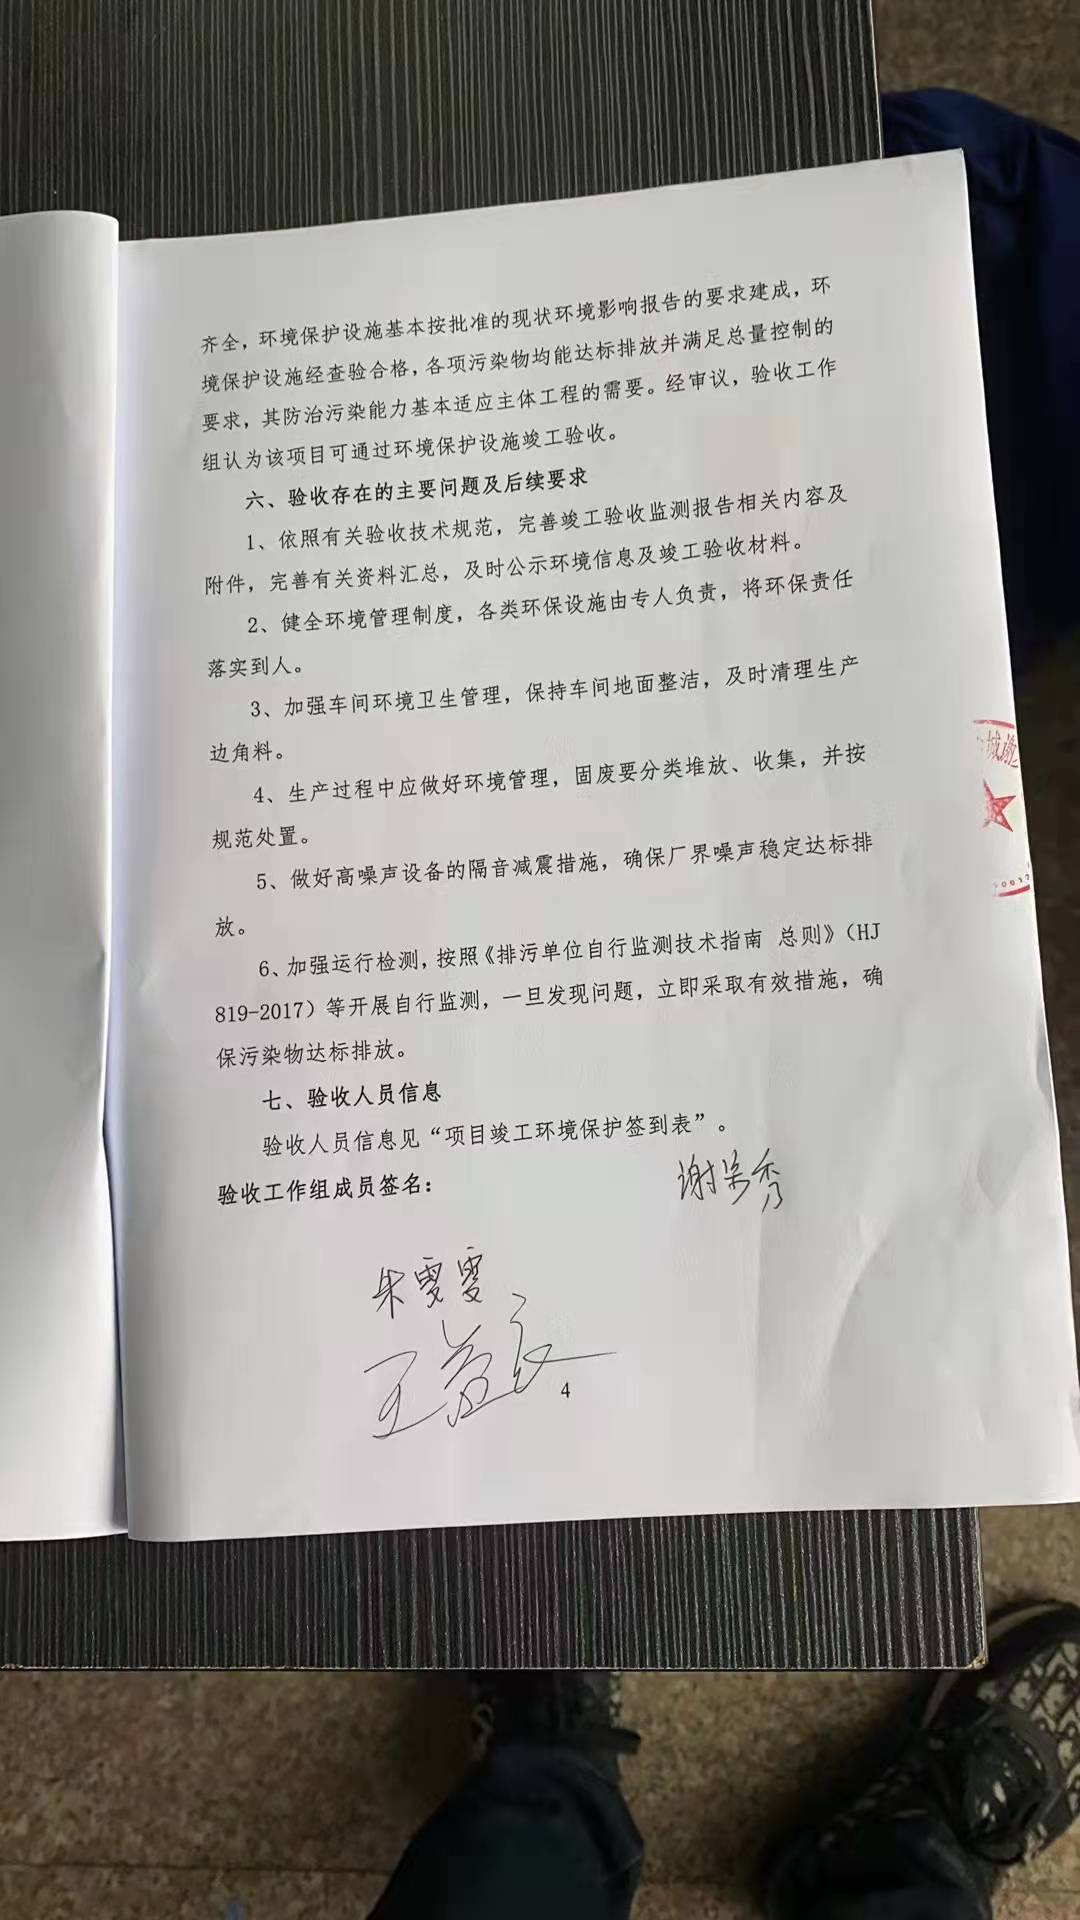 齐全，环境保护设施基本按批准的现状环境影响报告的要求建成，环
境保护设施经查验合格，各项污染物均能达标排放并满足总量控制的
要求，其防治污染能力基本适应主体工程的需要。经审议，验收工作
组认为该项目可通过环境保护设施竣工验收。
六、验收存在的主要问题及后续要求
1、依照有关验收技术规范，完善竣工验收监测报告相关内容及
附件，完善有关资料汇总，及时公示环境信息及竣工验收材料。
2、健全环境管理制度，各类环保设施由专人负责，将环保责任
落实到人。
3、加强车间环境卫生管理，保持车间地面整洁，及时清理生产
边角料。
4、生产过程中应做好环境管理，固废要分类堆放、收集，并按
规范处置。
5、做好高噪声设备的隔音减震措施，确保厂界噪声稳定达标排
放。
6、加强运行检测，按照《排污单位自行监测技术指南 总则》（HJ
819-2017）等开展自行监测，一旦发现问题，立即采取有效措施，确
保污染物达标排放。
七、验收人员信息
验收人员信息见“项目竣工环境保护签到表”。
验收工作组成员签名：
朱雯雯
王益良
4